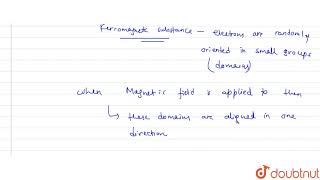 Ferromagnetic substance – electrons are randomly
oriented in small groups
(domains)
when Magnetic field is applied to them
↳ these domains are aligned in one
direction
doubtnut